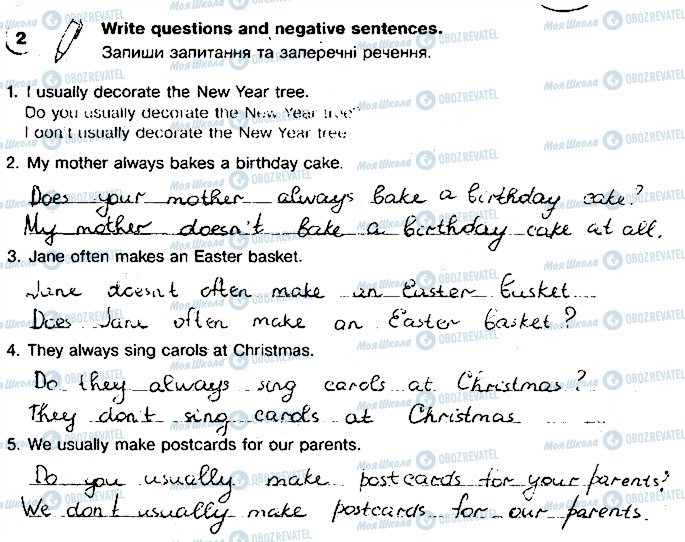 2
Write questions and negative sentences.
Запиши запитання та заперечні речення.
1. I usually decorate the New Year tree.
Do you usually decorate the New Year tree?
I don't usually decorate the New Year tree
2. My mother always bakes a birthday cake.
Does your mother always bake a birthday cake?
My mother doesn't bake a birthday cake at all.
3. Jane often makes an Easter basket.
Jane doesnt often make an Easter basket
Does Jane often make an Easter basket?
4. They always sing carols at Christmas.
Do they always sing carols at Christmas?
They don't sing carols at Christmas
5. We usually make postcards for our parents.
Do you usually make postcards for your parents?
We don't usually make postcards for our parents.